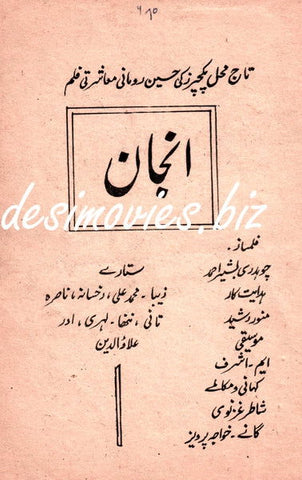 ۶۷۰
تاج محل پکچرز کی حسین رومانی معاشرتی فلم
انجان
desimovies.biz
فلمساز۔
چوہدری بشیر احمد
ہدایت کار
منور رشید
موسیقی
ایم۔ اشرف
کہانی و مکالمے
شاطر غزنوی
گانے۔ خواجہ پرویز
ستارے
زیبا۔ محمد علی، رخسانہ، ناصرہ
تانی، ننھا۔ لہری، اور
علاؤالدین